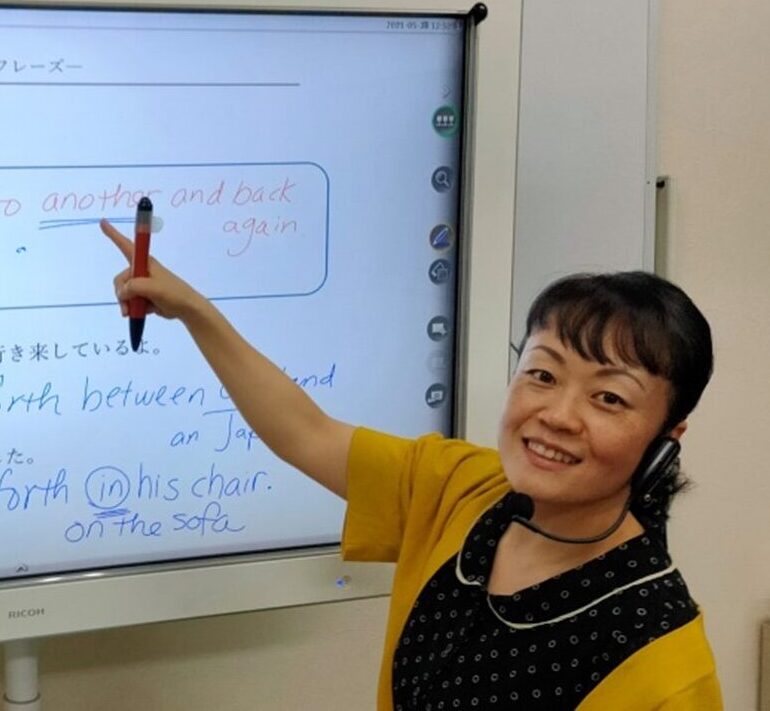 フレーズ―
another and back
again.
行き来しているよ。
between and
an Jap
た。
forth in his chair.
on the sofa
RICOH